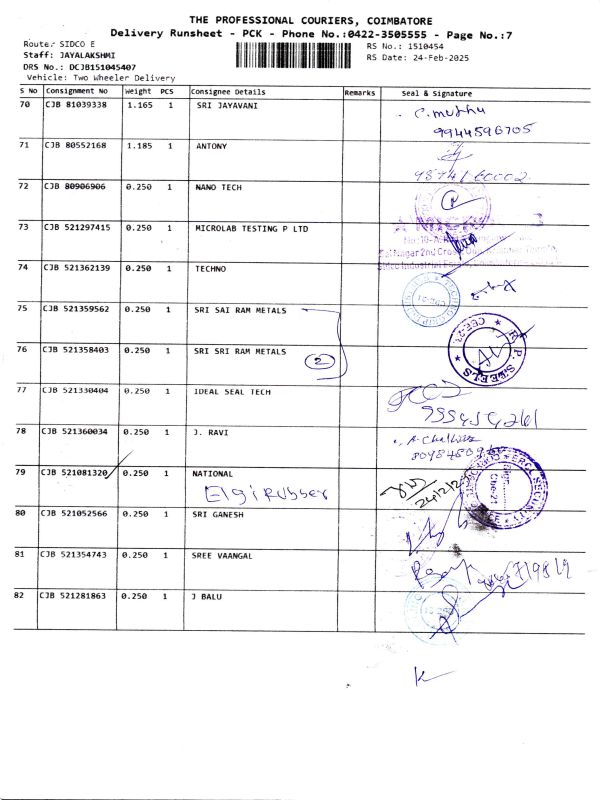 THE PROFESSIONAL COURIERS, COIMBATORE
Delivery Runsheet - PCK - Phone No.:0422-3505555 - Page No.:7
Route: SIDCO E
RS No.: 1510454
Staff: JAYALAKSHMI
RS Date: 24-Feb-2025
DRS No.: DCJB151045407
Vehicle: Two Wheeler Delivery
S No Consignment No Weight PCS Consignee Details Remarks Seal & Signature
70 CJB 81039338 1.165 1 SRI JAYAVANI C. muthu
9944596705
71 CJB 80552168 1.185 1 ANTONY
72 CJB 80906906 0.250 1 NANO TECH
73 CJB 521297415 0.250 1 MICROLAB TESTING P LTD
74 CJB 521362139 0.250 1 TECHNO
75 CJB 521359562 0.250 1 SRI SAI RAM METALS
76 CJB 521358403 0.250 1 SRI SRI RAM METALS 2
77 CJB 521330404 0.250 1 IDEAL SEAL TECH
78 CJB 521360034 0.250 1 J. RAVI
79 CJB 521081320 0.250 1 NATIONAL
Elgi Rubber
80 CJB 521052566 0.250 1 SRI GANESH
81 CJB 521354743 0.250 1 SREE VAANGAL
82 CJB 521281863 0.250 1 J BALU